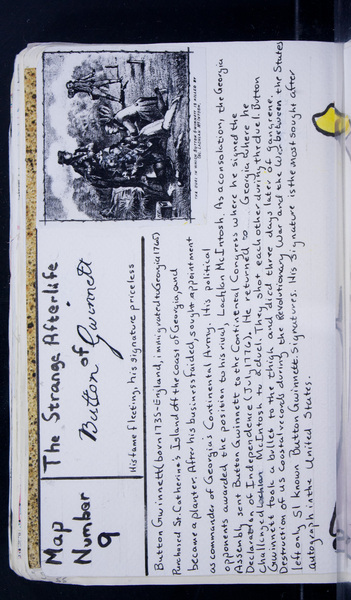 Map
Number
9
The Strange Afterlife
of
Button Gwinnett
His fame fleeting, his signature priceless
THE DUEL IN WHICH BUTTON GWINNETT IS KILLED BY
GEN. LACHLAN MCINTOSH.
Button Gwinnett (born 1735-England, immigrated to Georgia 1765)
Purchased St. Catherine's Island off the coast of Georgia, and
became a planter. After his business failed, sought appointment
as commander of Georgia's Continental Army. His political
opponents awarded the position to his rival Lachlan McIntosh. As a consolation, the Georgia
Assembly sent Button Gwinnett to the Continental Congress where he signed the
Declaration of Independence (July 1776). He returned to Georgia where he
challenged Lachlan McIntosh to a duel. They shot each other during the duel. Button
Gwinnett took a bullet to the thigh and died three days later of gangrene.
Destruction of US coastal records during the Revolutionary War and the War between the States
left only 51 known Button Gwinnett Signatures. His Signature is the most sought after
autograph in the United States.